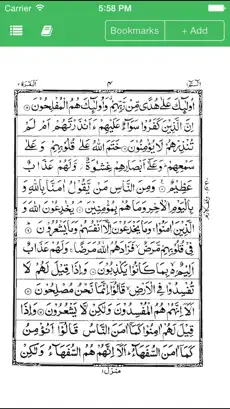 Carrier 5:58 PM
Bookmarks + Add
البقرة ٢ ٣ الٓمّٓ ١
اُولٰٓئِكَ عَلٰى هُدًى مِّنْ رَّبِّهِمْ وَاُولٰٓئِكَ هُمُ الْمُفْلِحُوْنَ ۝
اِنَّ الَّذِيْنَ كَفَرُوْا سَوَآءٌ عَلَيْهِمْ ءَاَنْذَرْتَهُمْ اَمْ لَمْ
تُنْذِرْهُمْ لَا يُؤْمِنُوْنَ ۝ خَتَمَ اللّٰهُ عَلٰى قُلُوْبِهِمْ وَعَلٰى
سَمْعِهِمْ وَعَلٰٓى اَبْصَارِهِمْ غِشَاوَةٌ وَّلَهُمْ عَذَابٌ
عَظِيْمٌ ۝ وَمِنَ النَّاسِ مَنْ يَّقُوْلُ اٰمَنَّا بِاللّٰهِ وَ
بِالْيَوْمِ الْاٰخِرِ وَمَا هُمْ بِمُؤْمِنِيْنَ ۝ يُخٰدِعُوْنَ اللّٰهَ وَ
الَّذِيْنَ اٰمَنُوْا وَمَا يَخْدَعُوْنَ اِلَّآ اَنْفُسَهُمْ وَمَا يَشْعُرُوْنَ ۝
فِيْ قُلُوْبِهِمْ مَّرَضٌ فَزَادَهُمُ اللّٰهُ مَرَضًا وَلَهُمْ عَذَابٌ
اَلِيْمٌۢ بِمَا كَانُوْا يَكْذِبُوْنَ ۝ وَاِذَا قِيْلَ لَهُمْ لَا
تُفْسِدُوْا فِي الْاَرْضِ قَالُوْٓا اِنَّمَا نَحْنُ مُصْلِحُوْنَ ۝
اَلَآ اِنَّهُمْ هُمُ الْمُفْسِدُوْنَ وَلٰكِنْ لَّا يَشْعُرُوْنَ ۝ وَاِذَا
قِيْلَ لَهُمْ اٰمِنُوْا كَمَآ اٰمَنَ النَّاسُ قَالُوْٓا اَنُؤْمِنُ
كَمَآ اٰمَنَ السُّفَهَآءُ اَلَآ اِنَّهُمْ هُمُ السُّفَهَآءُ وَلٰكِنْ
منزل ١